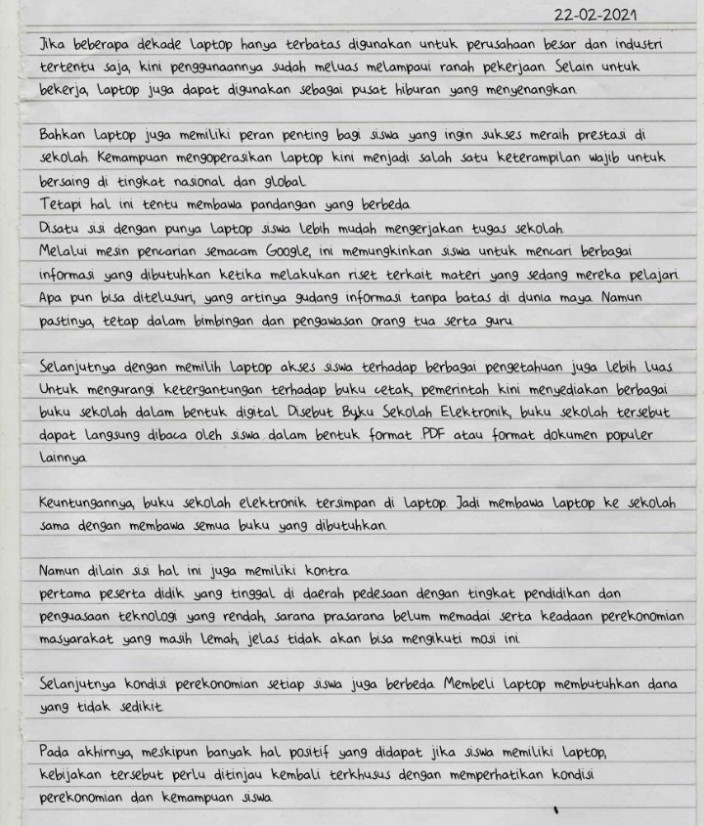 22-02-2021
Jika beberapa dekade laptop hanya terbatas digunakan untuk perusahaan besar dan industri
tertentu saja, kini penggunaannya sudah meluas melampaui ranah pekerjaan Selain untuk
bekerja, laptop juga dapat digunakan sebagai pusat hiburan yang menyenangkan
Bahkan laptop juga memiliki peran penting bagi siswa yang ingin sukses meraih prestasi di
sekolah Kemampuan mengoperasikan laptop kini menjadi salah satu keterampilan wajib untuk
bersaing di tingkat nasional dan global
Tetapi hal ini tentu membawa pandangan yang berbeda
Disatu sisi dengan punya laptop siswa lebih mudah mengerjakan tugas sekolah
Melalui mesin pencarian semacam Google, ini memungkinkan siswa untuk mencari berbagai
informasi yang dibutuhkan ketika melakukan riset terkait materi yang sedang mereka pelajari
Apa pun bisa ditelusuri, yang artinya gudang informasi tanpa batas di dunia maya Namun
pastinya, tetap dalam bimbingan dan pengawasan orang tua serta guru
Selanjutnya dengan memilih laptop akses siswa terhadap berbagai pengetahuan juga lebih luas
Untuk mengurangi ketergantungan terhadap buku cetak, pemerintah kini menyediakan berbagai
buku sekolah dalam bentuk digital Disebut Byku Sekolah Elektronik, buku sekolah tersebut
dapat langsung dibaca oleh siswa dalam bentuk format PDF atau format dokumen populer
lainnya
Keuntungannya, buku sekolah elektronik tersimpan di laptop Jadi membawa laptop ke sekolah
sama dengan membawa semua buku yang dibutuhkan
Namun dilain sisi hal ini juga memiliki kontra
pertama peserta didik yang tinggal di daerah pedesaan dengan tingkat pendidikan dan
penguasaan teknologi yang rendah, sarana prasarana belum memadai serta keadaan perekonomian
masyarakat yang masih lemah, jelas tidak akan bisa mengikuti mosi ini
Selanjutnya kondisi perekonomian setiap siswa juga berbeda Membeli laptop membutuhkan dana
yang tidak sedikit
Pada akhirnya, meskipun banyak hal positif yang didapat jika siswa memiliki laptop,
kebijakan tersebut perlu ditinjau kembali terkhusus dengan memperhatikan kondisi
perekonomian dan kemampuan siswa